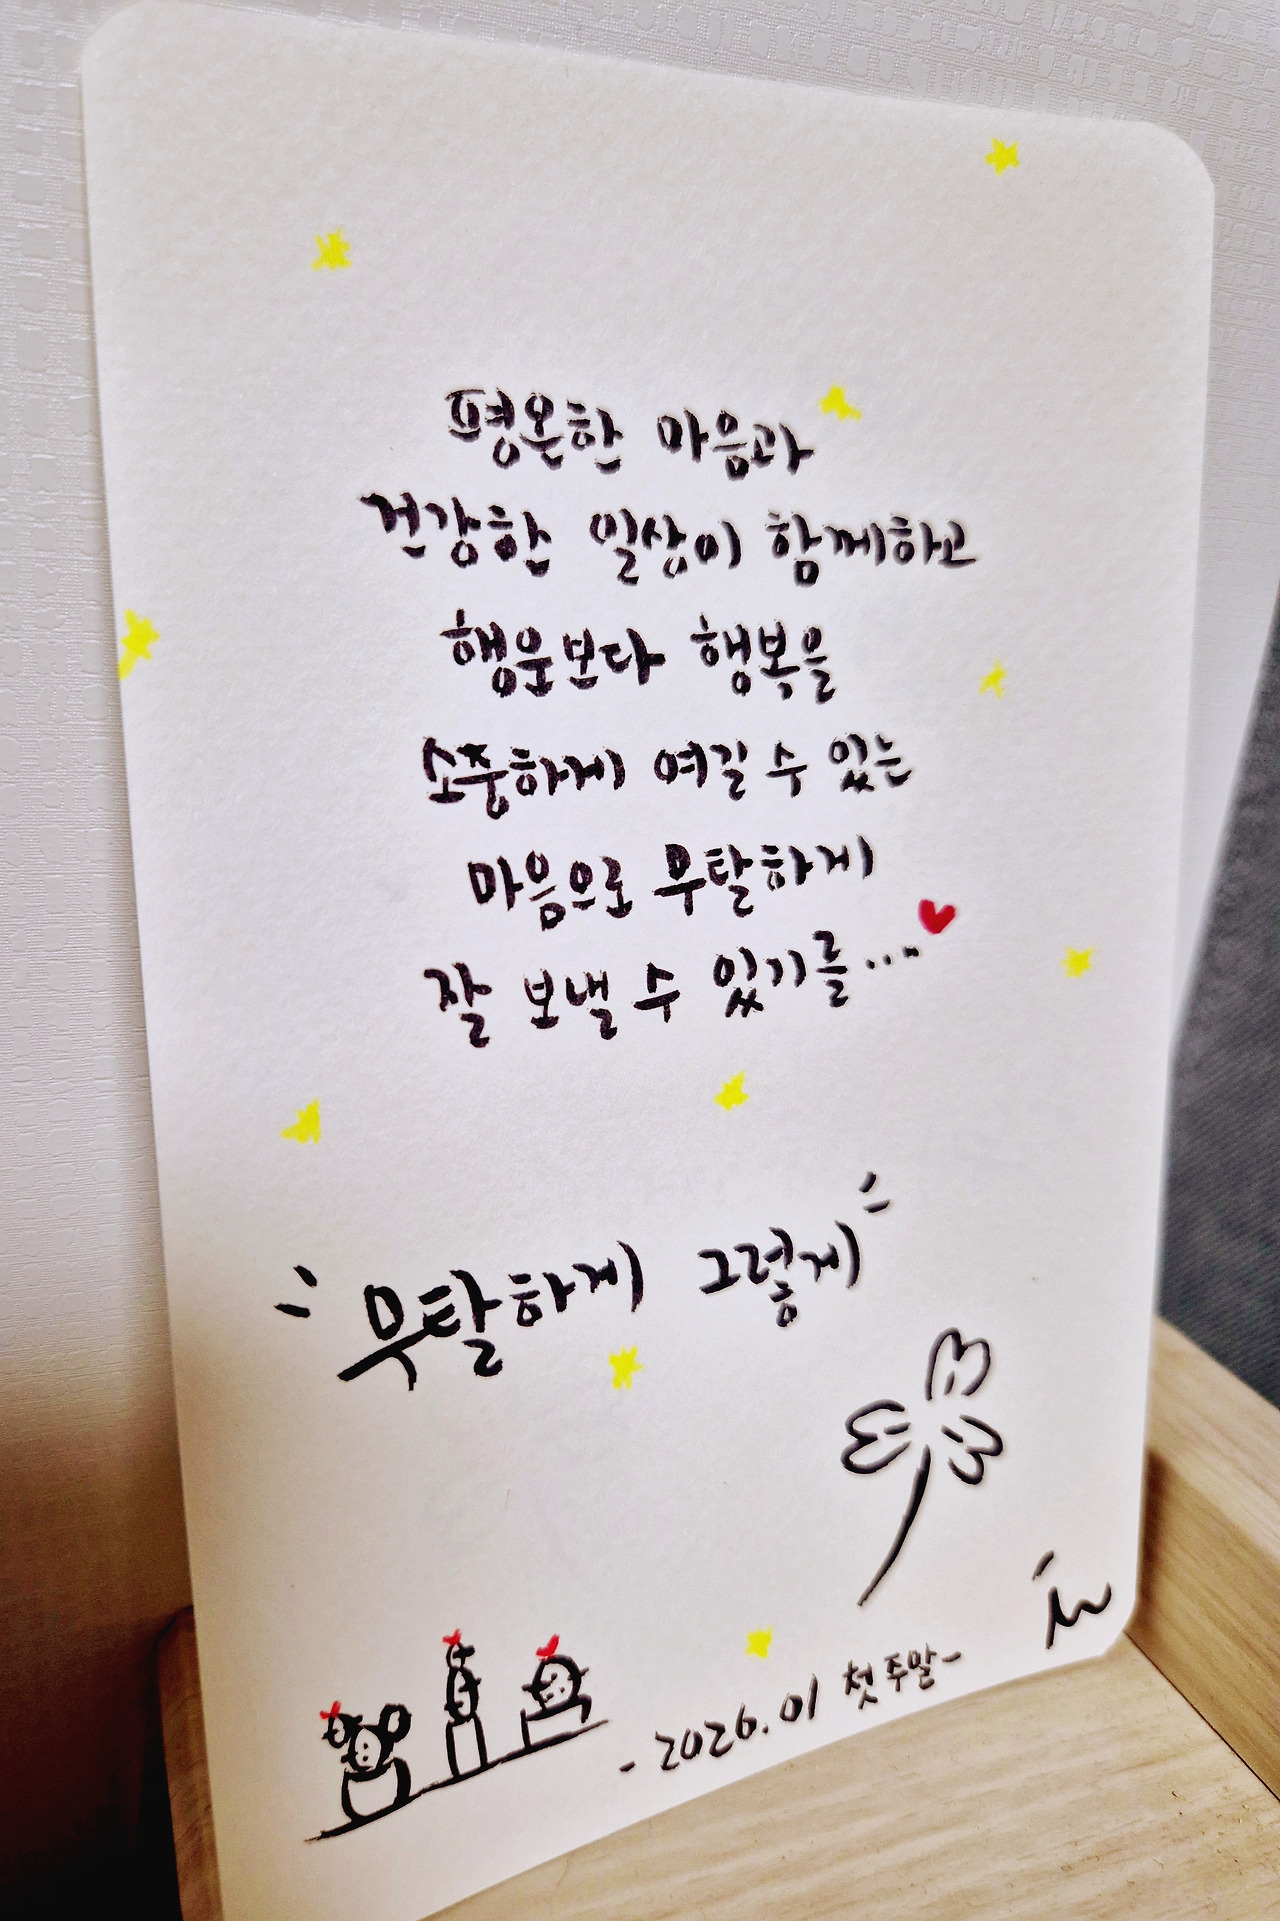 평온한 마음과
건강한 일상이 함께하고
행운보다 행복을
소중하게 여길 수 있는
마음으로 무탈하게
잘 보낼 수 있기를...
"무탈하게 그렇게"
-2026.01 첫 주말-